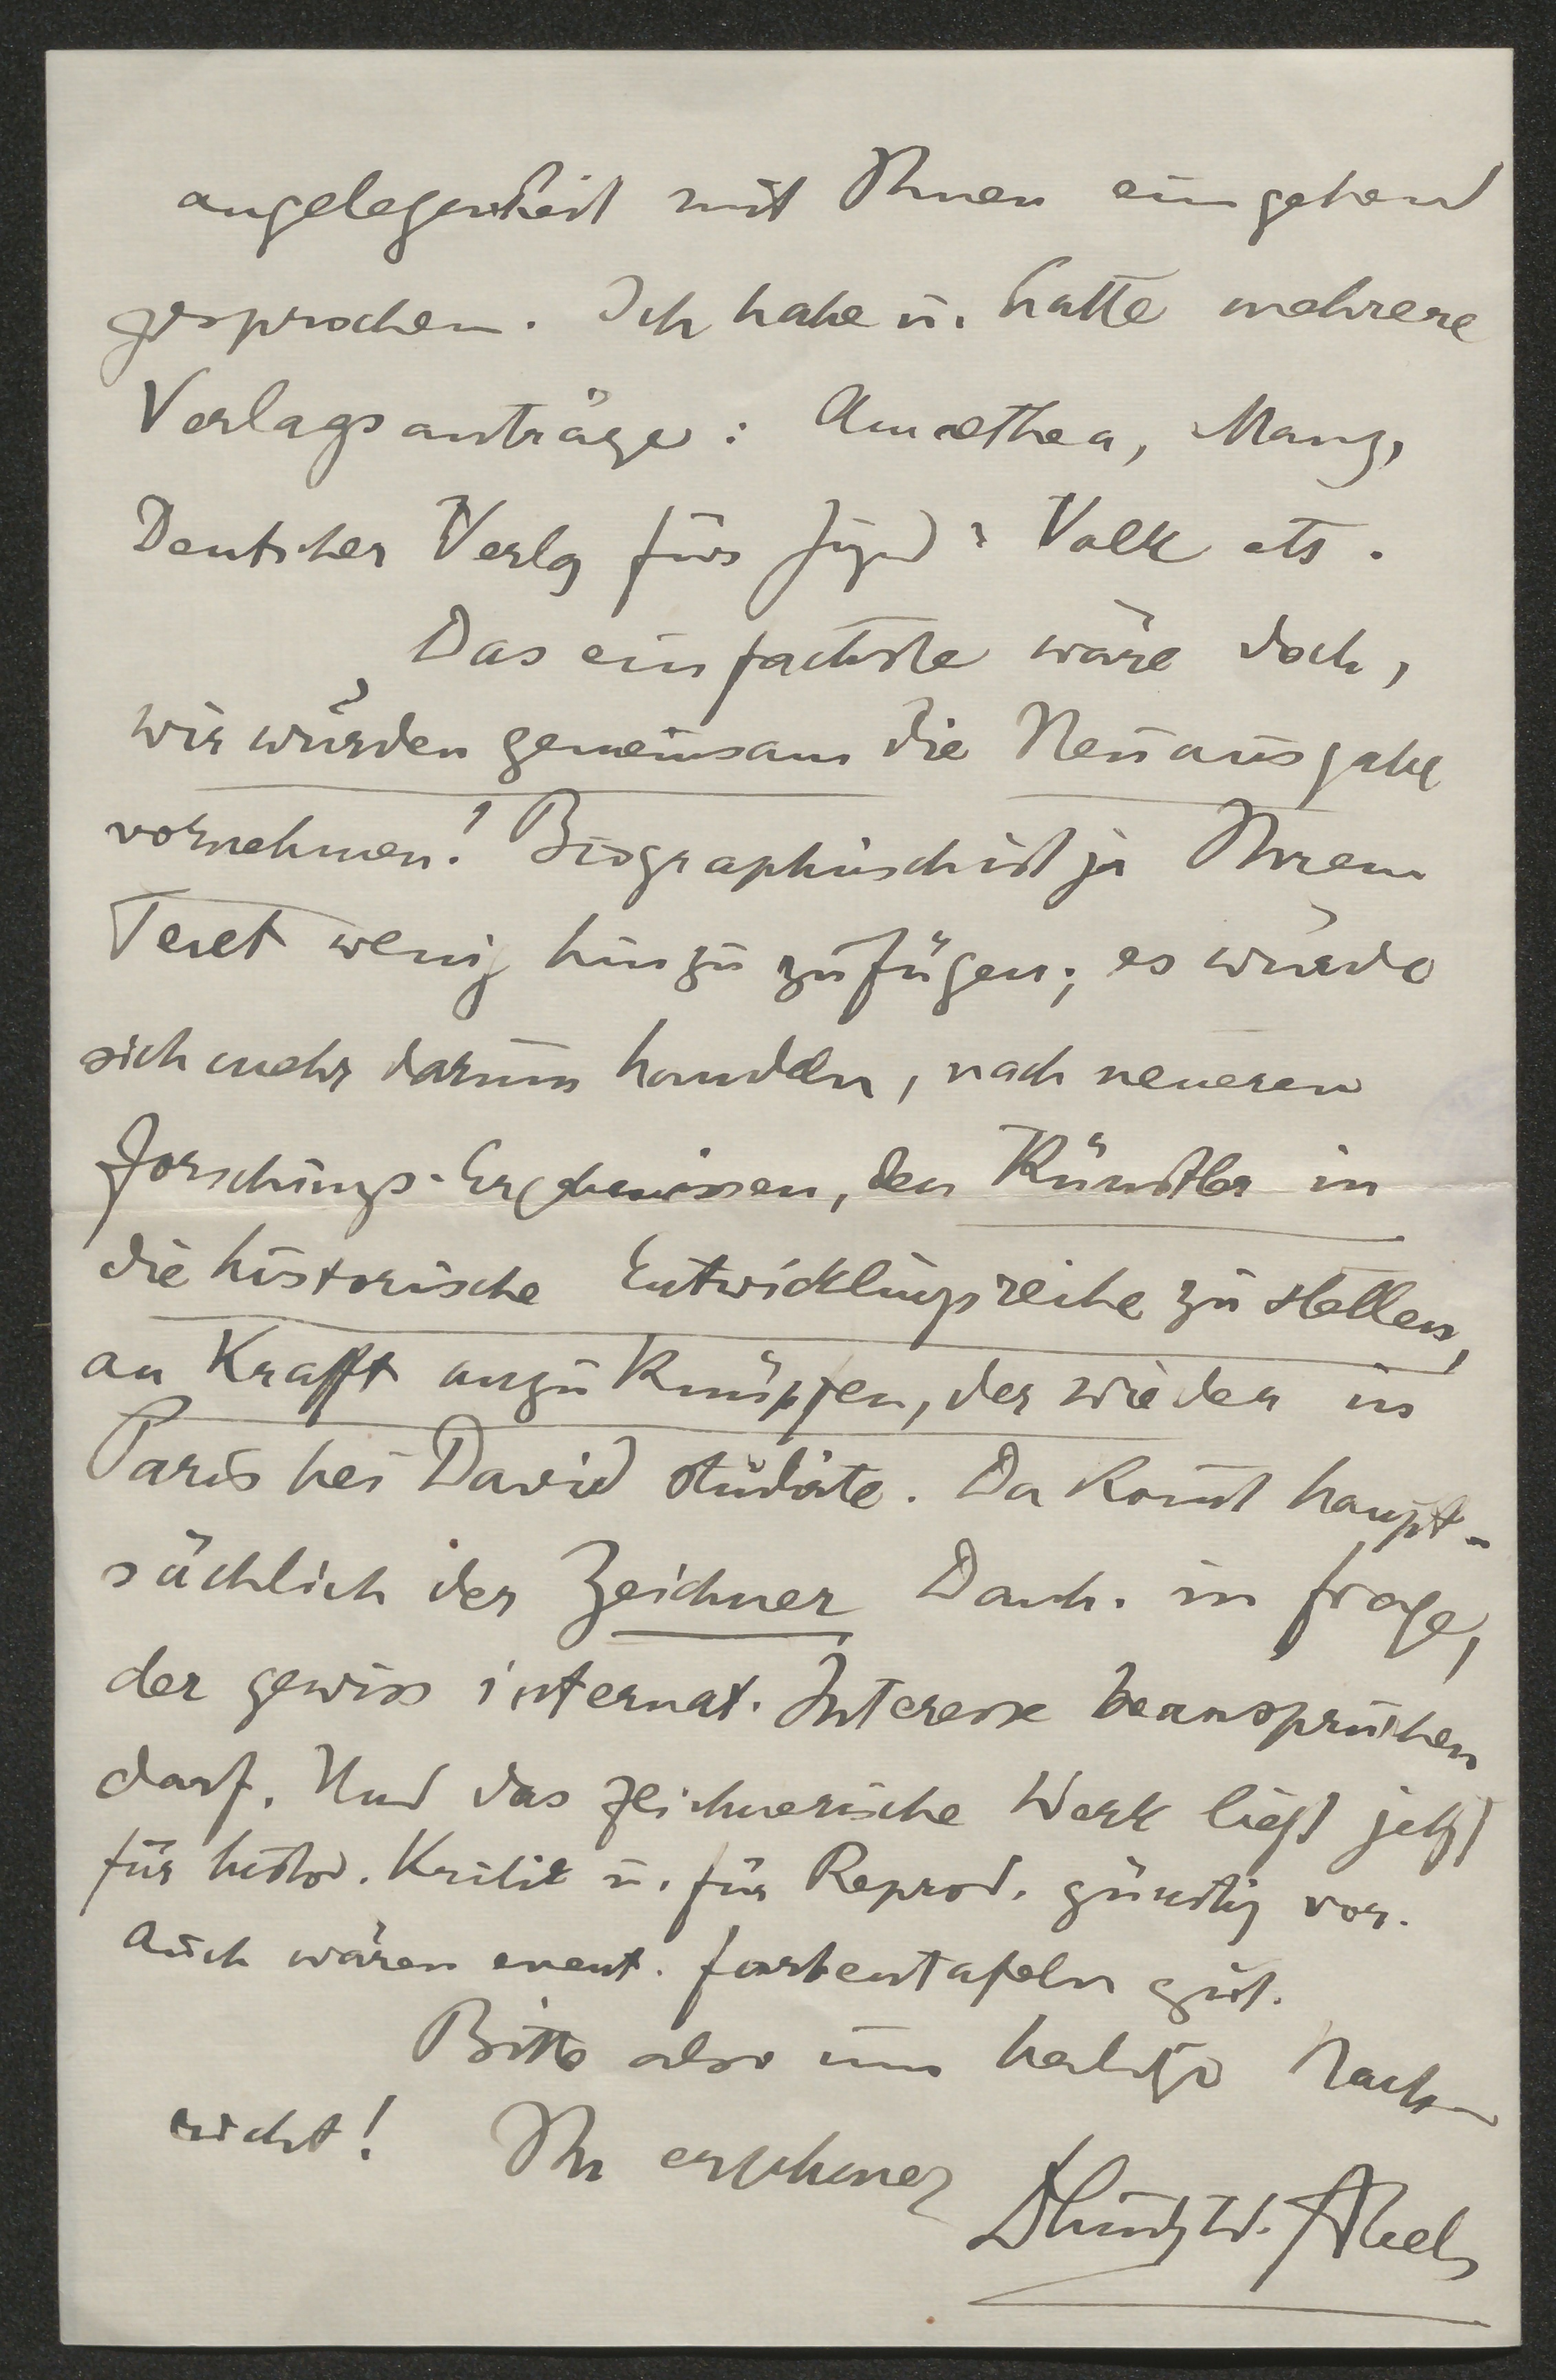 angelegenheit mit Ihnen eingehend
gesprochen. Ich habe u. hatte mehrere
Verlagsanträge: Amalthea, Manz,
Deutscher Verlg fürs Jugd & Volk etc.
Das einfachste wäre doch,
wir würden gemeinsam die Neuausgabe
vornehmen! Biographisch ist ja Ihrem
Text wenig hinzuzufügen; es würde
sich mehr darum handeln, nach neueren
Forschungs-Ergebnissen, den Künstler in
die historische Entwicklungsreihe zu stellen,
an Krafft anzuknüpfen, der wieder in
Paris bei David studirte. Da komt haupt-
sächlich der Zeichner Danh. in Frage,
der gewiss internat. Interesse beanspruchen
darf. Und das zeichnerische Werk liegt jetzt
für histor. Kritik u. für Reprod. günstig vor.
Auch wären event. Farbentafeln gut.
Bitte also um baldige Nach-
richt! Ihr ergebener